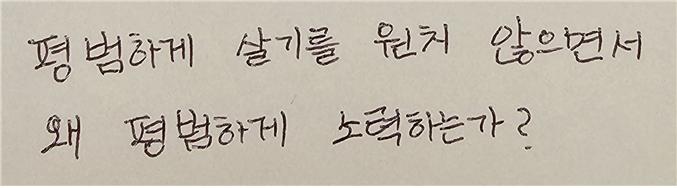 평범하게 살기를 원치 않으면서
왜 평범하게 노력하는가?